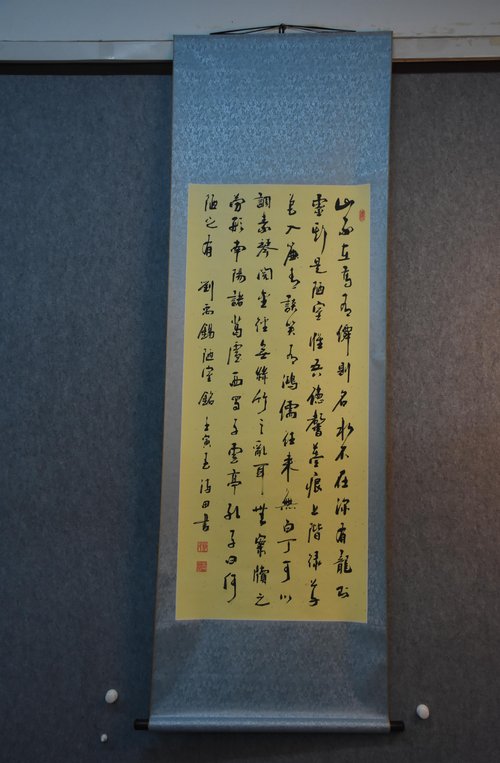 山不在高有僊則名水不在深有龍則
靈斯是陋室惟吾德馨苔痕上階绿草
色入簾青談笑有鴻儒往来無白丁可以
調素琴閱金經無絲竹之亂耳無案牘之
勞形南陽諸葛廬西蜀子雲亭孔子曰何
陋之有 劉禹錫陋室銘 壬寅夏 田書